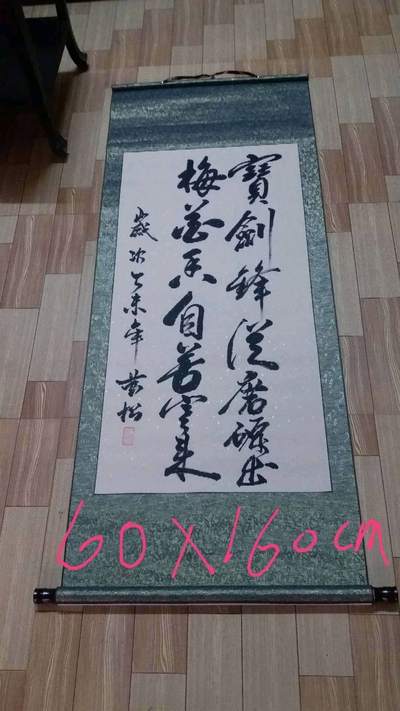 寶劍鋒從磨礪出
梅花香自苦寒來
歲次乙未年 松
60X160cm